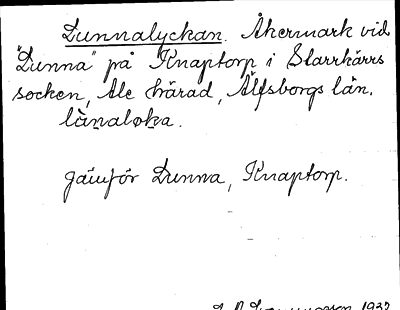 Lunnalyckan. Åkermark vid
"Lunna" på Knaptorp i Starrkärrs
socken, Ale härad, Älfsborgs län.
lànaloka.
Jämför Lunna, Knaptorp.